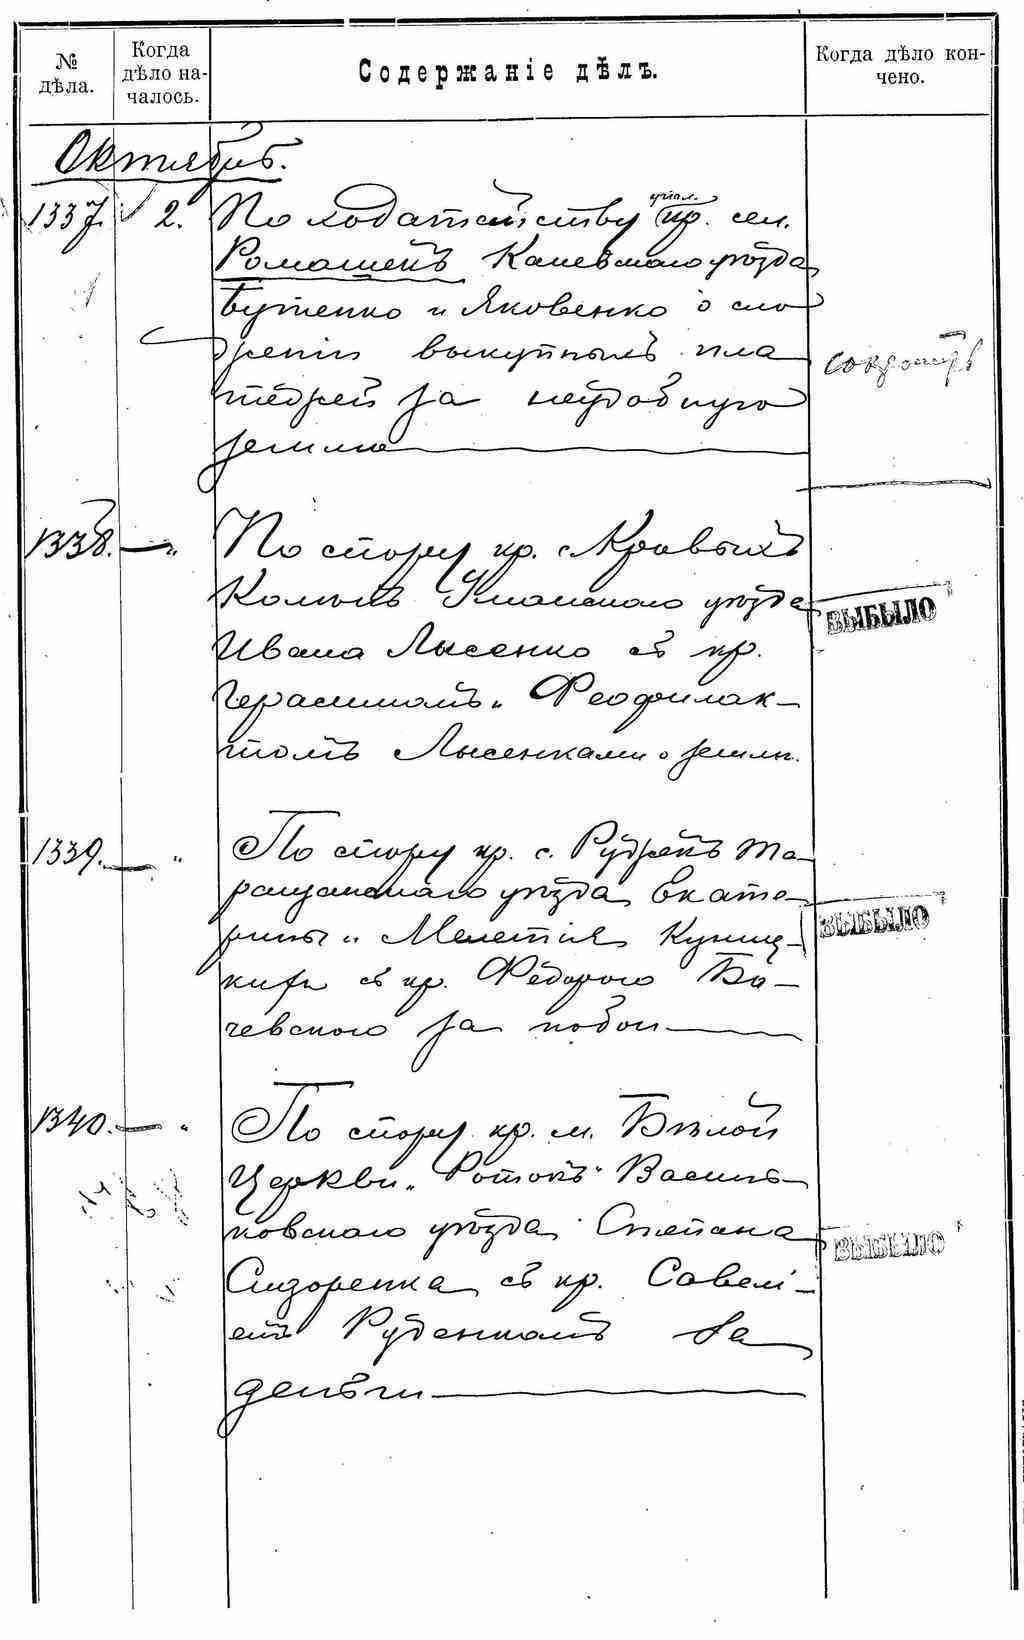 № дѣла.
Когда дѣло началось.
Содержаніе дѣлъ.
Когда дѣло кончено.
Октябрь.
1337. 2. По ходатайству упол. кр. сел.
Ромашекъ Каневскаго уѣзда
Бутенко и Яковенко о сло
женіи выкупныхъ пла
тежей за неудобную
землю
1338. — „ По спору кр. с. Кривыхъ
Колѣнъ Уманскаго уѣзда
ВЫБЫЛО
Ивана Лысенко съ кр.
Герасимомъ и Феофилак-
томъ Лысенками о землѣ.
1339. — „ По спору кр. с. Руджекъ Та-
ращанскаго уѣзда Екате-
ВЫБЫЛО
рины и Мелетія Куниц-
кихъ съ кр. Федоромъ Ба-
чевского за побои
1340. — „ По спору кр. м. Бѣлой
Церкви „Ротокъ" Василь-
ковскаго уѣзда Степана
ВЫБЫЛО
Сидоренка съ кр. Савелі-
емъ Руденкомъ за
деньги